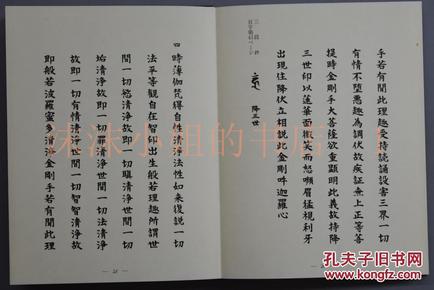 手若有聞此理趣受持讀誦設害三界一切
有情不墮惡趣為調伏故疾證無上正等菩
提時金剛手大菩薩欲重顯明此義故持降
三世印以蓮華面微笑而怒顰眉猛視利牙
出現住降伏立相說此金剛吽迦羅心
降三世
四 時薄伽梵得自性清淨法性如來復說一切
法平等觀自在智印出生般若理趣所謂世
間一切慾清淨故即一切瞋清淨世間一切
垢清淨故即一切罪清淨世間一切法清淨
故即一切有情清淨世間一切智智清淨故
即般若波羅蜜多清淨金剛手若有聞此理
孔夫子旧书网